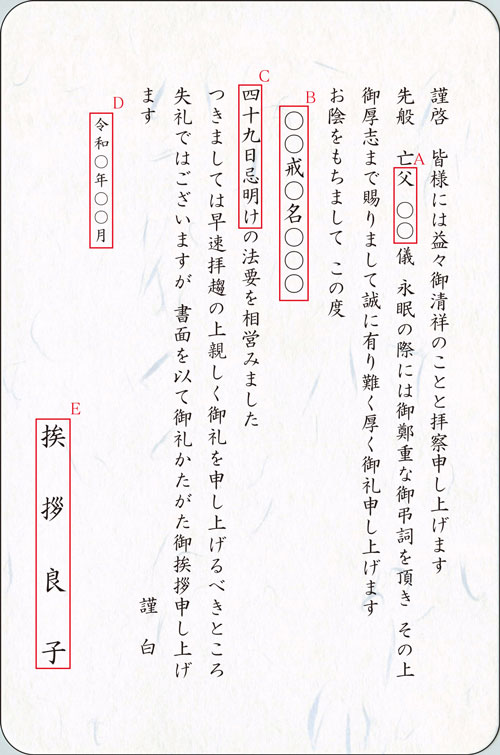 謹啓　皆様には益々御清祥のことと拝察申し上げます
先般　亡父　〇〇儀　永眠の際には御鄭重な御弔詞を頂き　その上
御厚志まで賜りまして誠に有り難く厚く御礼申し上げます
お陰をもちまして　この度
〇〇戒〇名〇〇〇
四十九日忌明けの法要を相営みました
つきましては早速拝趨の上親しく御礼を申し上げるべきところ
失礼ではございますが　書面を以て御礼かたがた御挨拶申し上げ
ます　謹白
令和〇年〇〇月
挨拶良子
A
B
C
D
E